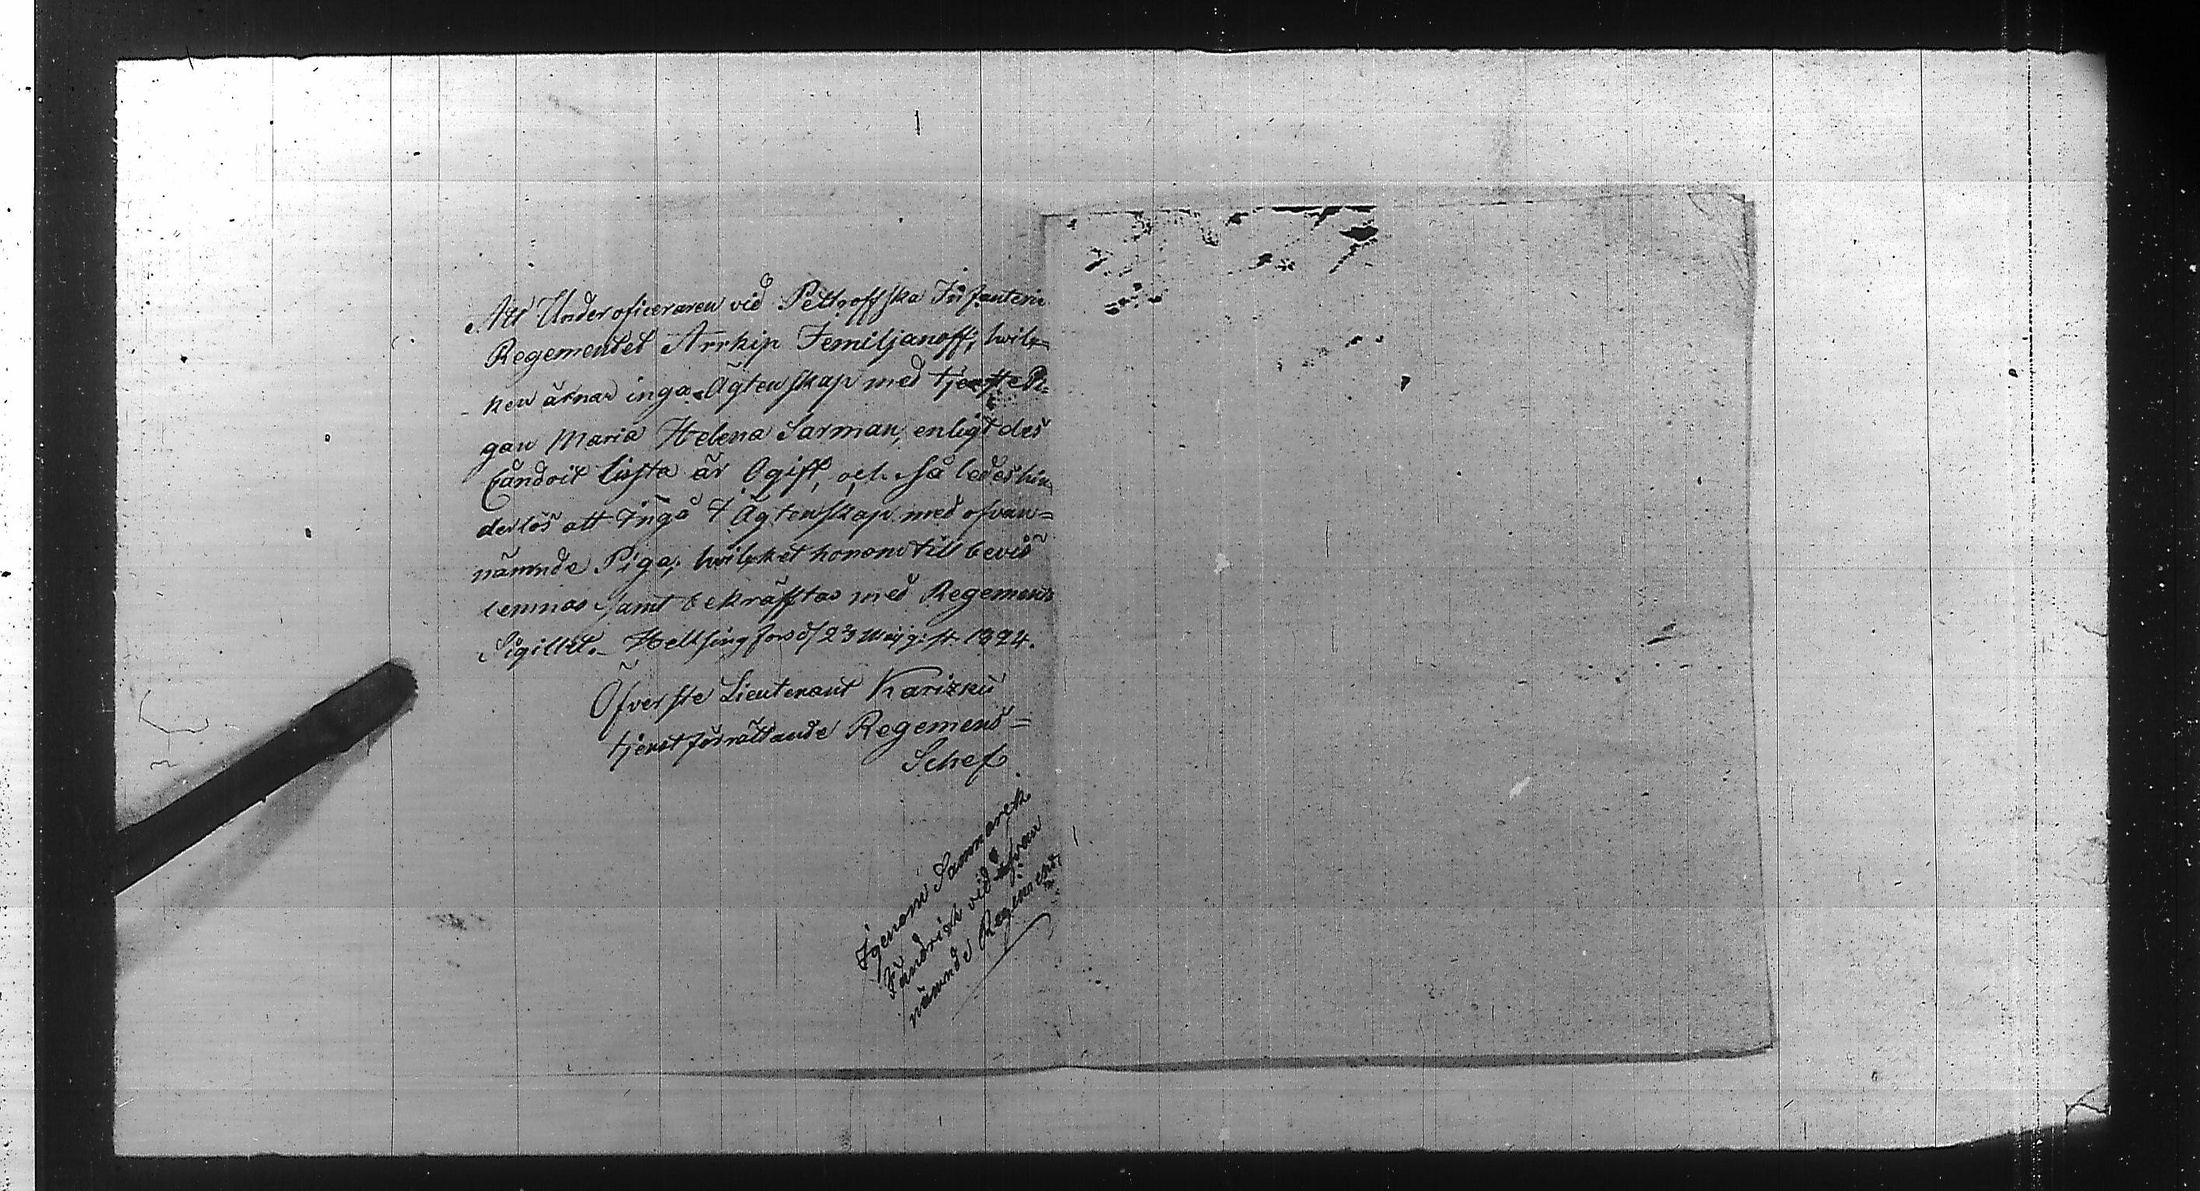 Att Underoficeraren vid Pettroffska Infanteri
Regementet Arrhip Jemiljanoff, hvil=
ken ärnar inga Ägtenskap med tjenste Pi=
gan Maria Helena Sarman, enligt des
Canduit lista är Ogift, och så ledes hin
derlös att Ingå i Ägtenskap med ofvan=
nämnde Piga, hvilket honom till bevis
lemnas samt bekräfftas med Regements
Sigillet. Hellsingfors d/ 23 Maij 1824.
Öfverste Lieutenant Karizkii
tjenstförrättande Regemens=
Schef
Igenom Sammarck
Fändrick vid ofvan
nämnde Regimend